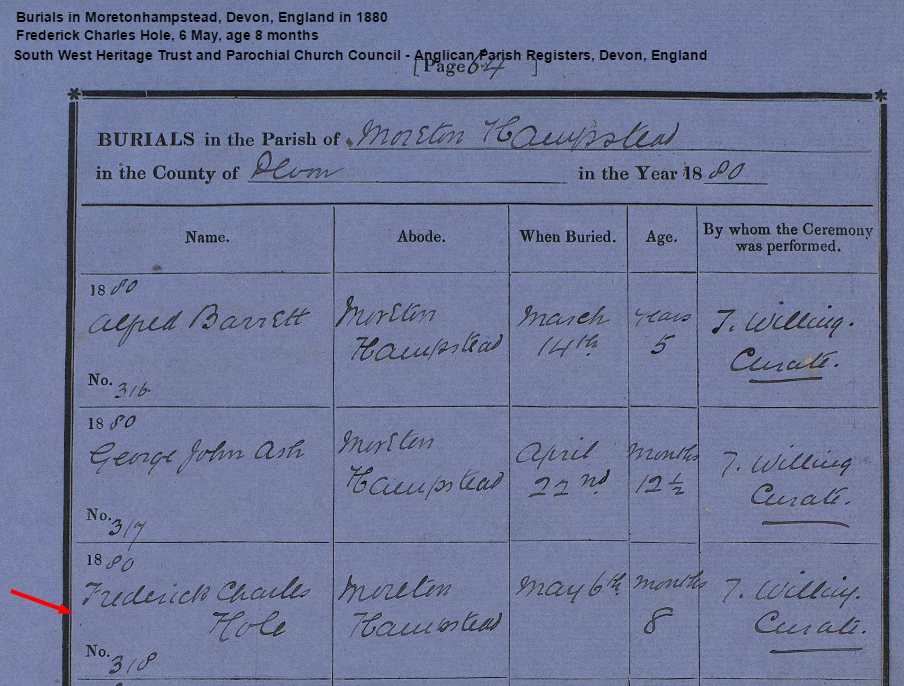 Burials in Moretonhampstead, Devon, England in 1880
Frederick Charles Hole, 6 May, age 8 months
South West Heritage Trust and Parochial Church Council - Anglican Parish Registers, Devon, England
[ Page 64 ]
BURIALS in the Parish of Moreton Hampstead
in the County of Devon in the Year 1880
Name. Abode. When Buried. Age. By whom the Ceremony was performed.
1880
Alfred Barrett Moreton March years T. Willing.
Hampstead 14th 5 Curate.
No. 316
1880
George John Ash Moreton April Months T. Willing
Hampstead 22nd 12 1/2 Curate.
No. 317
1880
Frederick Charles Moreton May 6th months T. Willing.
Hole Hampstead 8 Curate.
No. 318